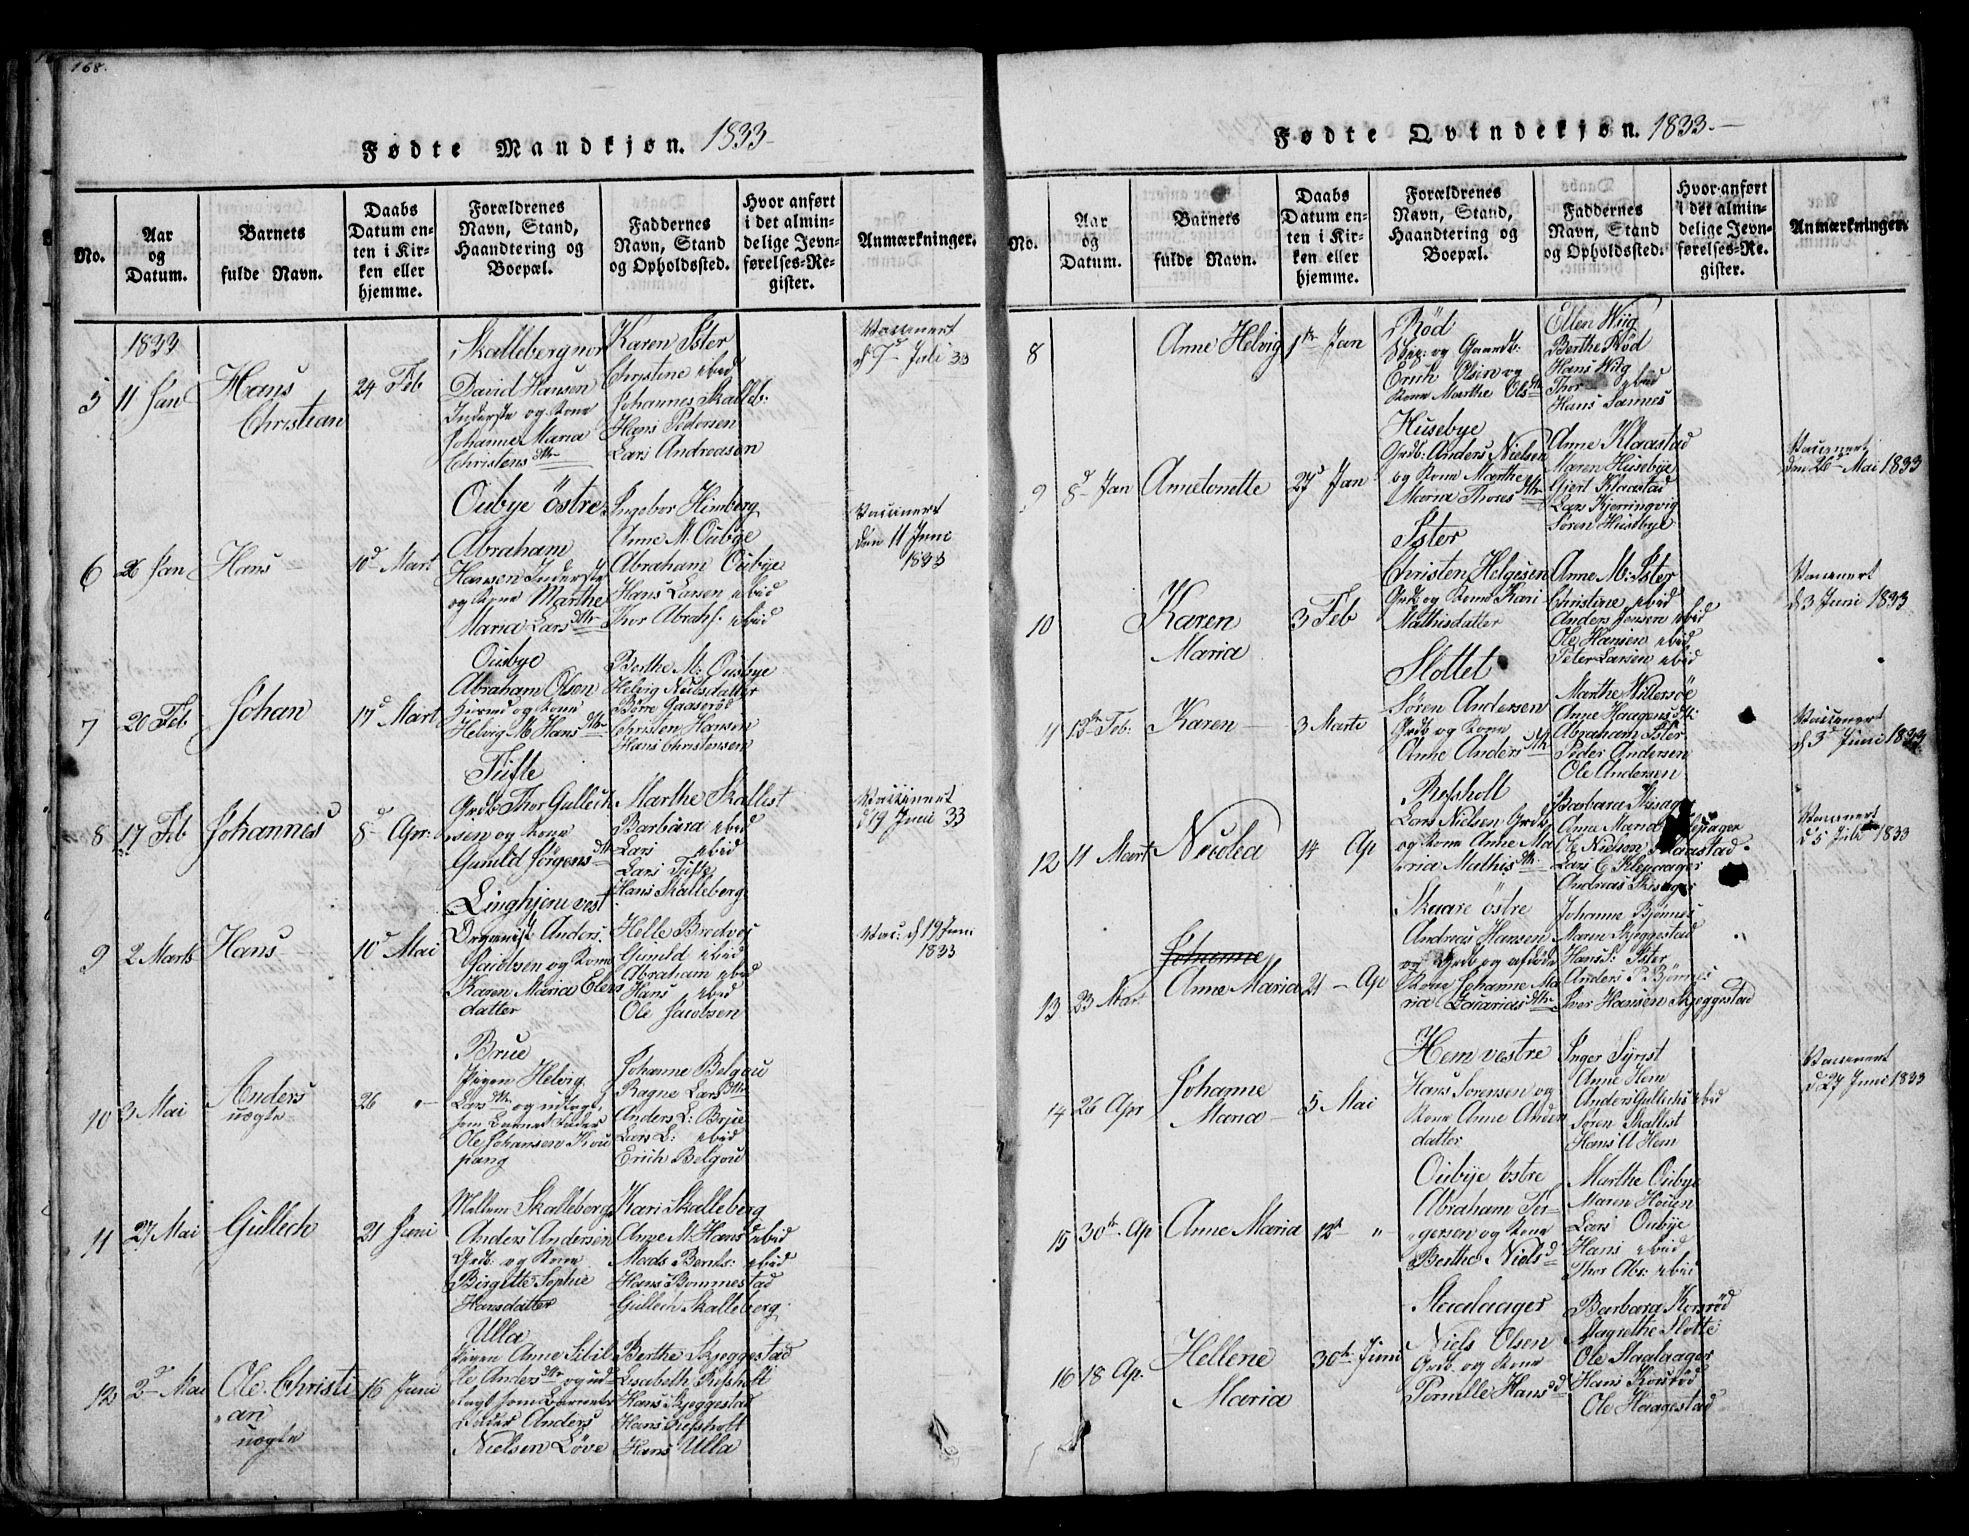 168.
Fødte Mandkjøn. 1833
No.
Aar og Datum.
Barnets fulde Navn.
Daabs Datum enten i Kirken eller hjemme.
Forældrenes Navn, Stand, Haandtering og Boepæl.
Faddernes Navn, Stand og Opholdssted.
Hvor anført i det almindelige Jevnførelses-Register.
Anmærkninger.
1833
5
11 Jan
Hans
Christian
24 Feb
Skallebergnor
David Hansen
Inderste og Kone
Johanne Maria
Christensdtr
Karen Ister
Christine ibid
Johannes Skalleb:
Hans Pedersen
Lars Andreasen
Vaccinert
d 7d Juli 33
6
26 Jan
Hans
10d Mart
Oubye östre
Abraham
Hansen Inderste
og Kone Marthe
Maria Larsdtr
Ingebor Himberg
Anne M. Oubye
Abraham Oubye
Hans Larsen ibid
Thor Abrah. ibid
Vaccinert
den 11 Juni
1833
7
20 Feb
Johan
17d Mart
Ousbye
Abraham Olsen
og Kone
Helvig M. Hansdtr
Berthe M: Ousbye
Helvig Neilsdatter
Börre Gaaserød
Christen Hansen
Hans Christensen
8
17 Feb
Johannes
8d Apr:
Tufte
Grdb: Thor Gullich
sen og Kone
Gunild Jörgensdtr
Marthe Skallist
Barbara ibid
Lars ibid
Lars Tufte
Hans Skalleberg
Vaccinert
d 19 Juni 33
9
2 Marts
Hans
10d Mai
Linghjem vest
Organist Anders
Jacobsen og Kone
Karen Maria Elers
datter
Helle Bredvei
Gunild ibid
Abraham ibid
Hans ibid
Ole Jacobsen
Vac: d 19 Juni
1833
10
3 Mai
Anders
uægte
26 "
Brue
Pigen Helvig
Larsdtr og udlagt
som Barnefader
Ole Johansen Kou
pang
Johanne Belgou
Ragne Larsdtr
Anders L: Brue
Lars L: ibid
Erich Belgou
11
27 Mai
Gullich
21 Juni
Mellem Skalleberg
Anders Andersen
Grdb: og Kone
Birgitte Sophie
Hansdatter
Kari Skalleberg
Anne M. Hans ibid
Mads Bernts: ibid
Hans Bommestad
Gullich Skalleberg
12
2d Mai
Ole Christi
an
uægte
16 Juni
Ulla
Pigen Anne Sibil
le Andersdtr og ud
lagt som Barne
fader Anders
Nielsen Löve
Berthe Skjeggestad
Lisabeth Refsholt
Hans Skjeggestad
Hans Refsholt
Hans Ulla
Fødte Qvindekjøn. 1833.
No.
Aar og Datum.
Barnets fulde Navn.
Daabs Datum enten i Kirken eller hjemme.
Forældrenes Navn, Stand, Haandtering og Boepæl.
Faddernes Navn, Stand og Opholdssted.
Hvor anført i det almindelige Jevnførelses-Register.
Anmærkninger.
8
Anne Helvig
1ste Jan
Röd
Skip: og Gaardb:
Erich Olsen og
Kone Marthe Olsdtr
Ellen Wiig
Berthe Röd
Hans Wiig
Thor ibid
Hans Sannes
9
8d Jan
Annetonette
27d Jan
Husebye
Grdb: Anders Nielsen
og Kone Marthe
Maria Thoresdtr
Anne Klaastad
Maren Husebye
Giert Klaastad
Lars Kjerringvig
Sören Husebye
Vaccinert
den 26 Mai 1833
10
Karen
Maria
3 Feb
Ister
Christen Helgesen
Grdb og Kone Kari
Mathisdatter
Anne M: Ister
Christine ibid
Anders Jensen ibid
Ole Hansen ibid
Peter Larsen ibid
Vaccinert
d 3 Juni 1833
11
Feb:
Karen
3 Marts
Slottet
Sören Andersen
Grdb og Kone
Anne Andersdtr
Marthe Wittersöe
Anne Haagensdtr
Abraham Ister
Peder Andersen
Ole Andersen
Vaccinert
d 3d Juni 1833
12
11 Mart
Nicolea
14 Ap
Refsholt
Lars Nielsen Grdb
og Kone Anne Ma
ria Mathisdtr
Barbara Skisager
Anne Maria Klepager
Ole Nielsen Klaastad
Lars C. Klepaager
Andreas Skisager
Vaccinert
d 5 Juli 1833
13
23 Mart
Johanne
Anne Maria
21 Ap
Skaare östre
Andreas Hansen
og Grdb og afdöde
Kone Johanne Ma
ria Zacariasdtr
Johanne Bjönnes
Maren Skjeggestad
Hans S: Ister
Anders P. Bjönnes
Iver Hansen Skjeggestad
14
26 Apr
Johanne
Maria
5 Mai
Hem vestre
Hans Sorensen og
Kone Anne Anders
datter
Inger Syrist
Anne Hem
Anders Gullichs ibid
Sören Skallist
Hans U Hem
Vaccinert
d 27 Juni 1833
15
30te Ap
Anne Maria
12te "
Oubye östre
Abraham Tor
gersen og Kone
Berthe Nielsd
Marthe Oubye
Maren Houen
Lars Oubye
Hans ibid
Thor Abr: ibid
16
18 Ap.
Hellene
Maria
30te Juni
Staalaager
Niels Olsen
Grdb. og Kone
Pernille Hansd
Barbara Korsröd
Magrethe Slotte
Ole Staalaager
Hans Korsröd
Ole Haagestad